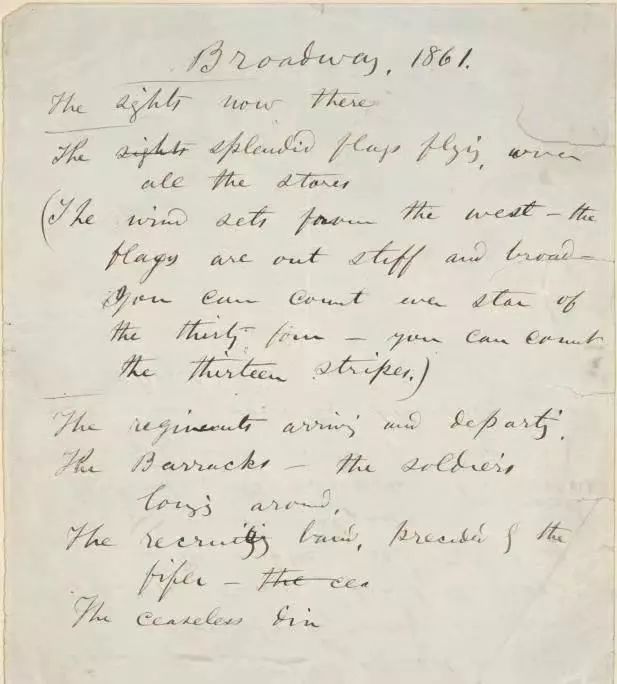 Broadway, 1861.
The sights now there
The sights splendid flags flying over
all the stores
(The wind sets from the west – the
flags are out stiff and broad –
you can count ever star of
the thirty four – you can count
the thirteen stripes.)
The regiments arriving and departing,
The Barracks – the soldiers
lounging around,
The recruiting band, preceded by the
fifer – the cea
The ceaseless din